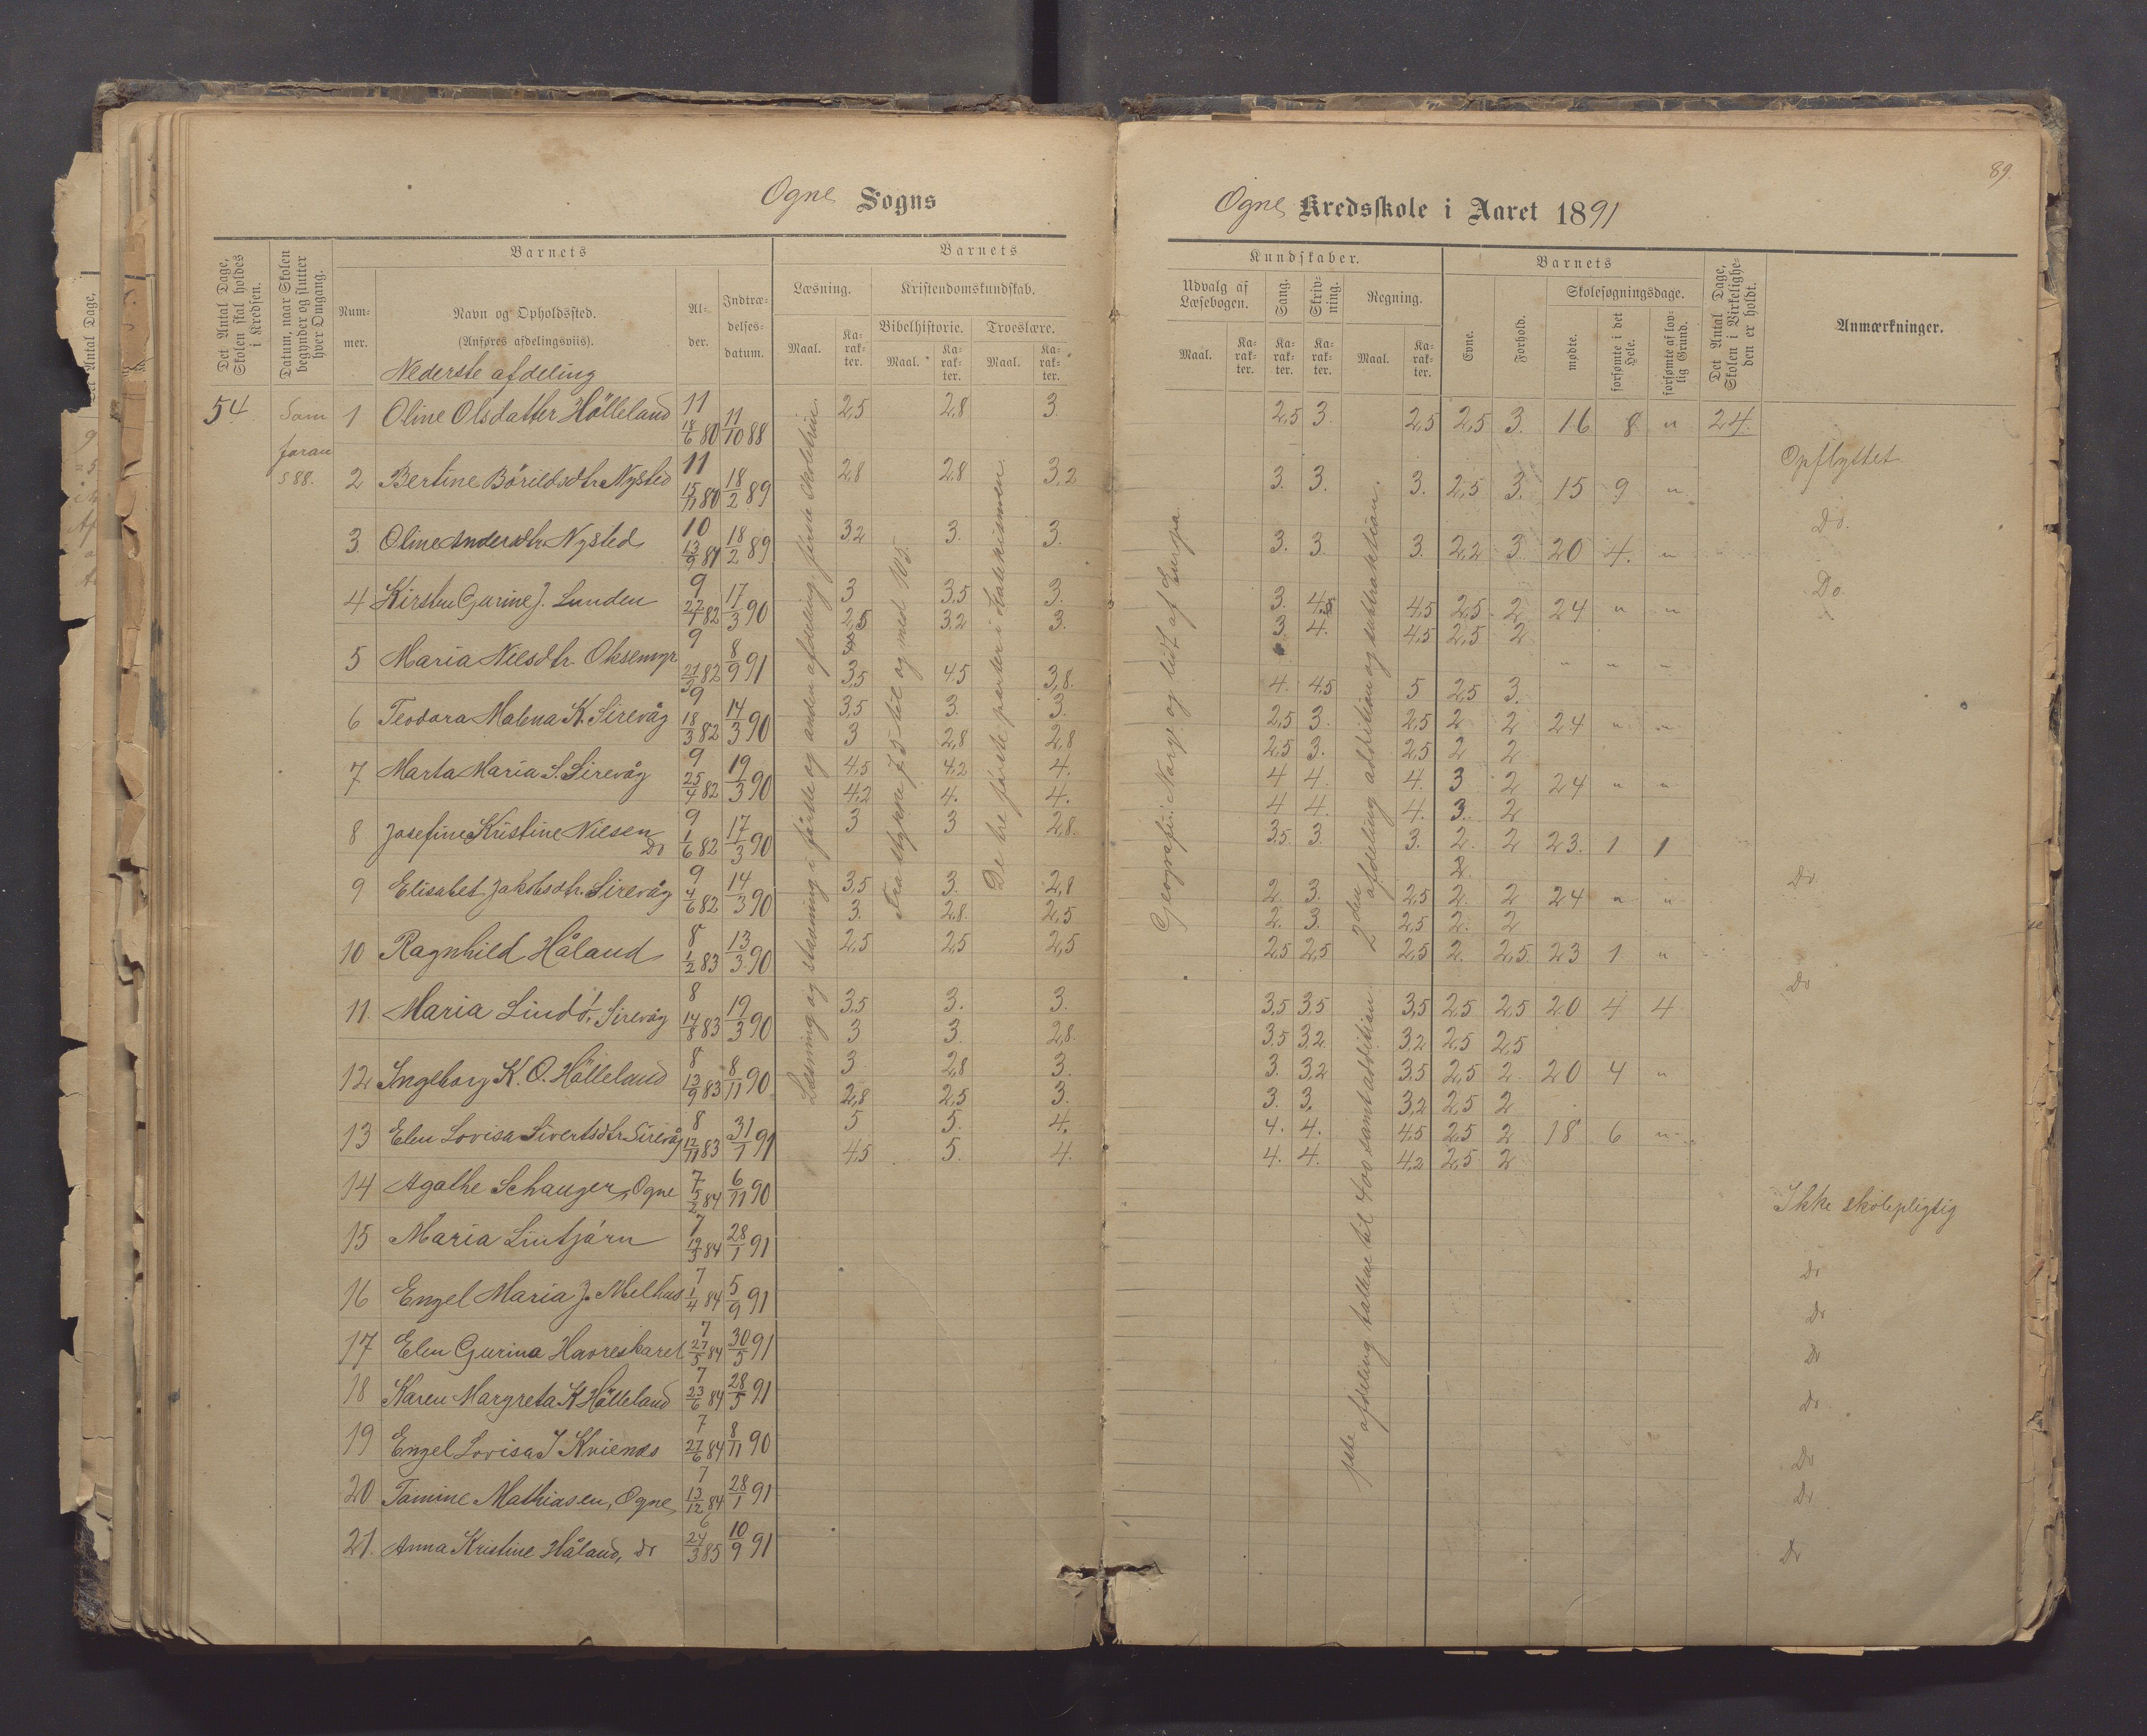 Ogne Sogns
Det Antal Dage, Skolen skal holdes i Kredsen.
Datum, naar Skolen begynder og slutter hver Omgang.
Barnets
Num-mer.
Navn og Opholdssted.
(Anføres afdelingsviis).
Al-der.
Indtræ-delses-datum.
Barnets
Læsning.
Kristendomskundskab.
Bibelhistorie. Troeslære.
Maal. Ka-rak-ter. Maal. Ka-rak-ter. Maal. Ka-rak-ter.
Nederste afdeling
54 Som foran s 88.
1 Oline Olsdatter Hölleland 11 18/6 80 11/10 88 2,5 2,8 3.
2 Bertine Börildsdtr Nysted 11 15/11 80 18/2 89 2,8 2,8 3,2
3 Oline Andersdtr. Nysted 10 13/9 81 18/2 89 3,2 3. 3.
4 Kirsten Gurine J. Lunden 9 82 17/3 90 3 3,5 3.
2,5 3,2 3.
5 Maria Nilsdtr. Oksemyr 9 21/3 82 8/9 91
3,5 4,5 3,8.
6 Teodora Malena K. Sirevåg 9 18/3 82 14/3 90 3,5 3. 3.
3 2,8 2,8
7 Marta Maria S. Sirevåg 9 25/4 82 19/3 90 4,5 4,2 4.
4,2 4. 4.
8 Josefine Kristine Nilsen Do 9 1/6 82 17/3 90 3 3 2,8.
9 Elisabet Jakobsdtr. Sirevåg 9 4/6 82 14/3 90 3,5 3. 2,8
3. 2,8. 2,5
10 Ragnhild Håland 8 1/2 83 13/3 90 2,5 2,5 2,5
11. Maria Lindö, Sirevåg 8 14/8 83 19/3 90 3,5 3. 3.
3 3. 2,8.
12 Ingeborg K. O. Hölleland 8 13/9 83 8/11 90 3 2,8 3.
2,8 2,5 3.
13 Elen Lovisa Sivertsdtr Sirevåg 8 12/11 83 31/1 91 5 5. 4.
4,5 5. 4.
14 Agathe Schauger, Ogne 7 5/2 84 6/11 90
15 Maria Lintjårn 7 19/3 84 28/1 91
16 Engel Maria J. Melhus 7 1/4 84 5/9 91
17 Elen Gurina Havreskaret 7 27/5 84 30/5 91
18 Karen Margreta K Hölleland 7 23/6 84 28/5 91
19 Engel Lovisa J Kvienæs 7 27/6 84 8/11 90
20 Tomine Mathiasen, Ogne 7 13/12 84 28/1 91
21. Anna Kristine Håland, do 6 24/3 85 10/9 91
Læsning og stavning i förste og anden afdeling, förste skoletrin.
Fra stykke 75 til og med 105.
De tre förste parter i katekismen.
89.
Ogne Kredsskole i Aaret 1891
Kundskaber.
Udvalg af Læsebogen.
Sang.
Skriv-ning.
Regning.
Maal. Ka-rak-ter. Ka-rak-ter. Ka-rak-ter. Maal. Ka-rak-ter.
Barnets
Evne.
Forhold.
Skolesøgningsdage.
mødte.
forsømte i det Hele.
forsømte af lov-lig Grund.
Det Antal Dage, Skolen i Virkelighe-den er holdt.
Anmærkninger.
2,5 3. 2,5 2,5 3. 16 8 " 24.
Opflyttet
3. 3. 3. 2,5 3. 15 9 "
Do.
3. 3. 3. 2,2 3 20 4. "
Do.
3. 4,5 4,5 2,5. 2 24 " "
3 4. 4,5 2,5 2
" " "
4. 4,5 5 2,5 3.
2,5 3. 2,5 2 2 24 " "
2,5 3. 2,5 2 2
4 4. 4. 3 2 24 " "
4 4. 4. 3. 2
3,5. 3. 3. 2. 2 23. 1 1
2. 3. 2,5 2. 2 24 " "
Do
2. 3. 2,5 2. 2
2,5 2,5 2,5 2. 2,5 23 1 "
Do
3,5 3,5 3,5 2,5 2,5 20 4 4
3,5 3,2 3,2 2,5 2,5
3. 3,2 3,5 2,5 2 20 4 "
3. 3. 3,2 2,5 2
4. 4. 4,5 2,5 2 18 6 "
4. 4. 4,2 2,5 2
Ikke skolepligtig
Do
Do
Do
Do
Do
Do
Do
Geografi: Norge og lidt af Europa
2den afdeling addition og subtraktion.
1ste afdeling tallene til 400 samt addition